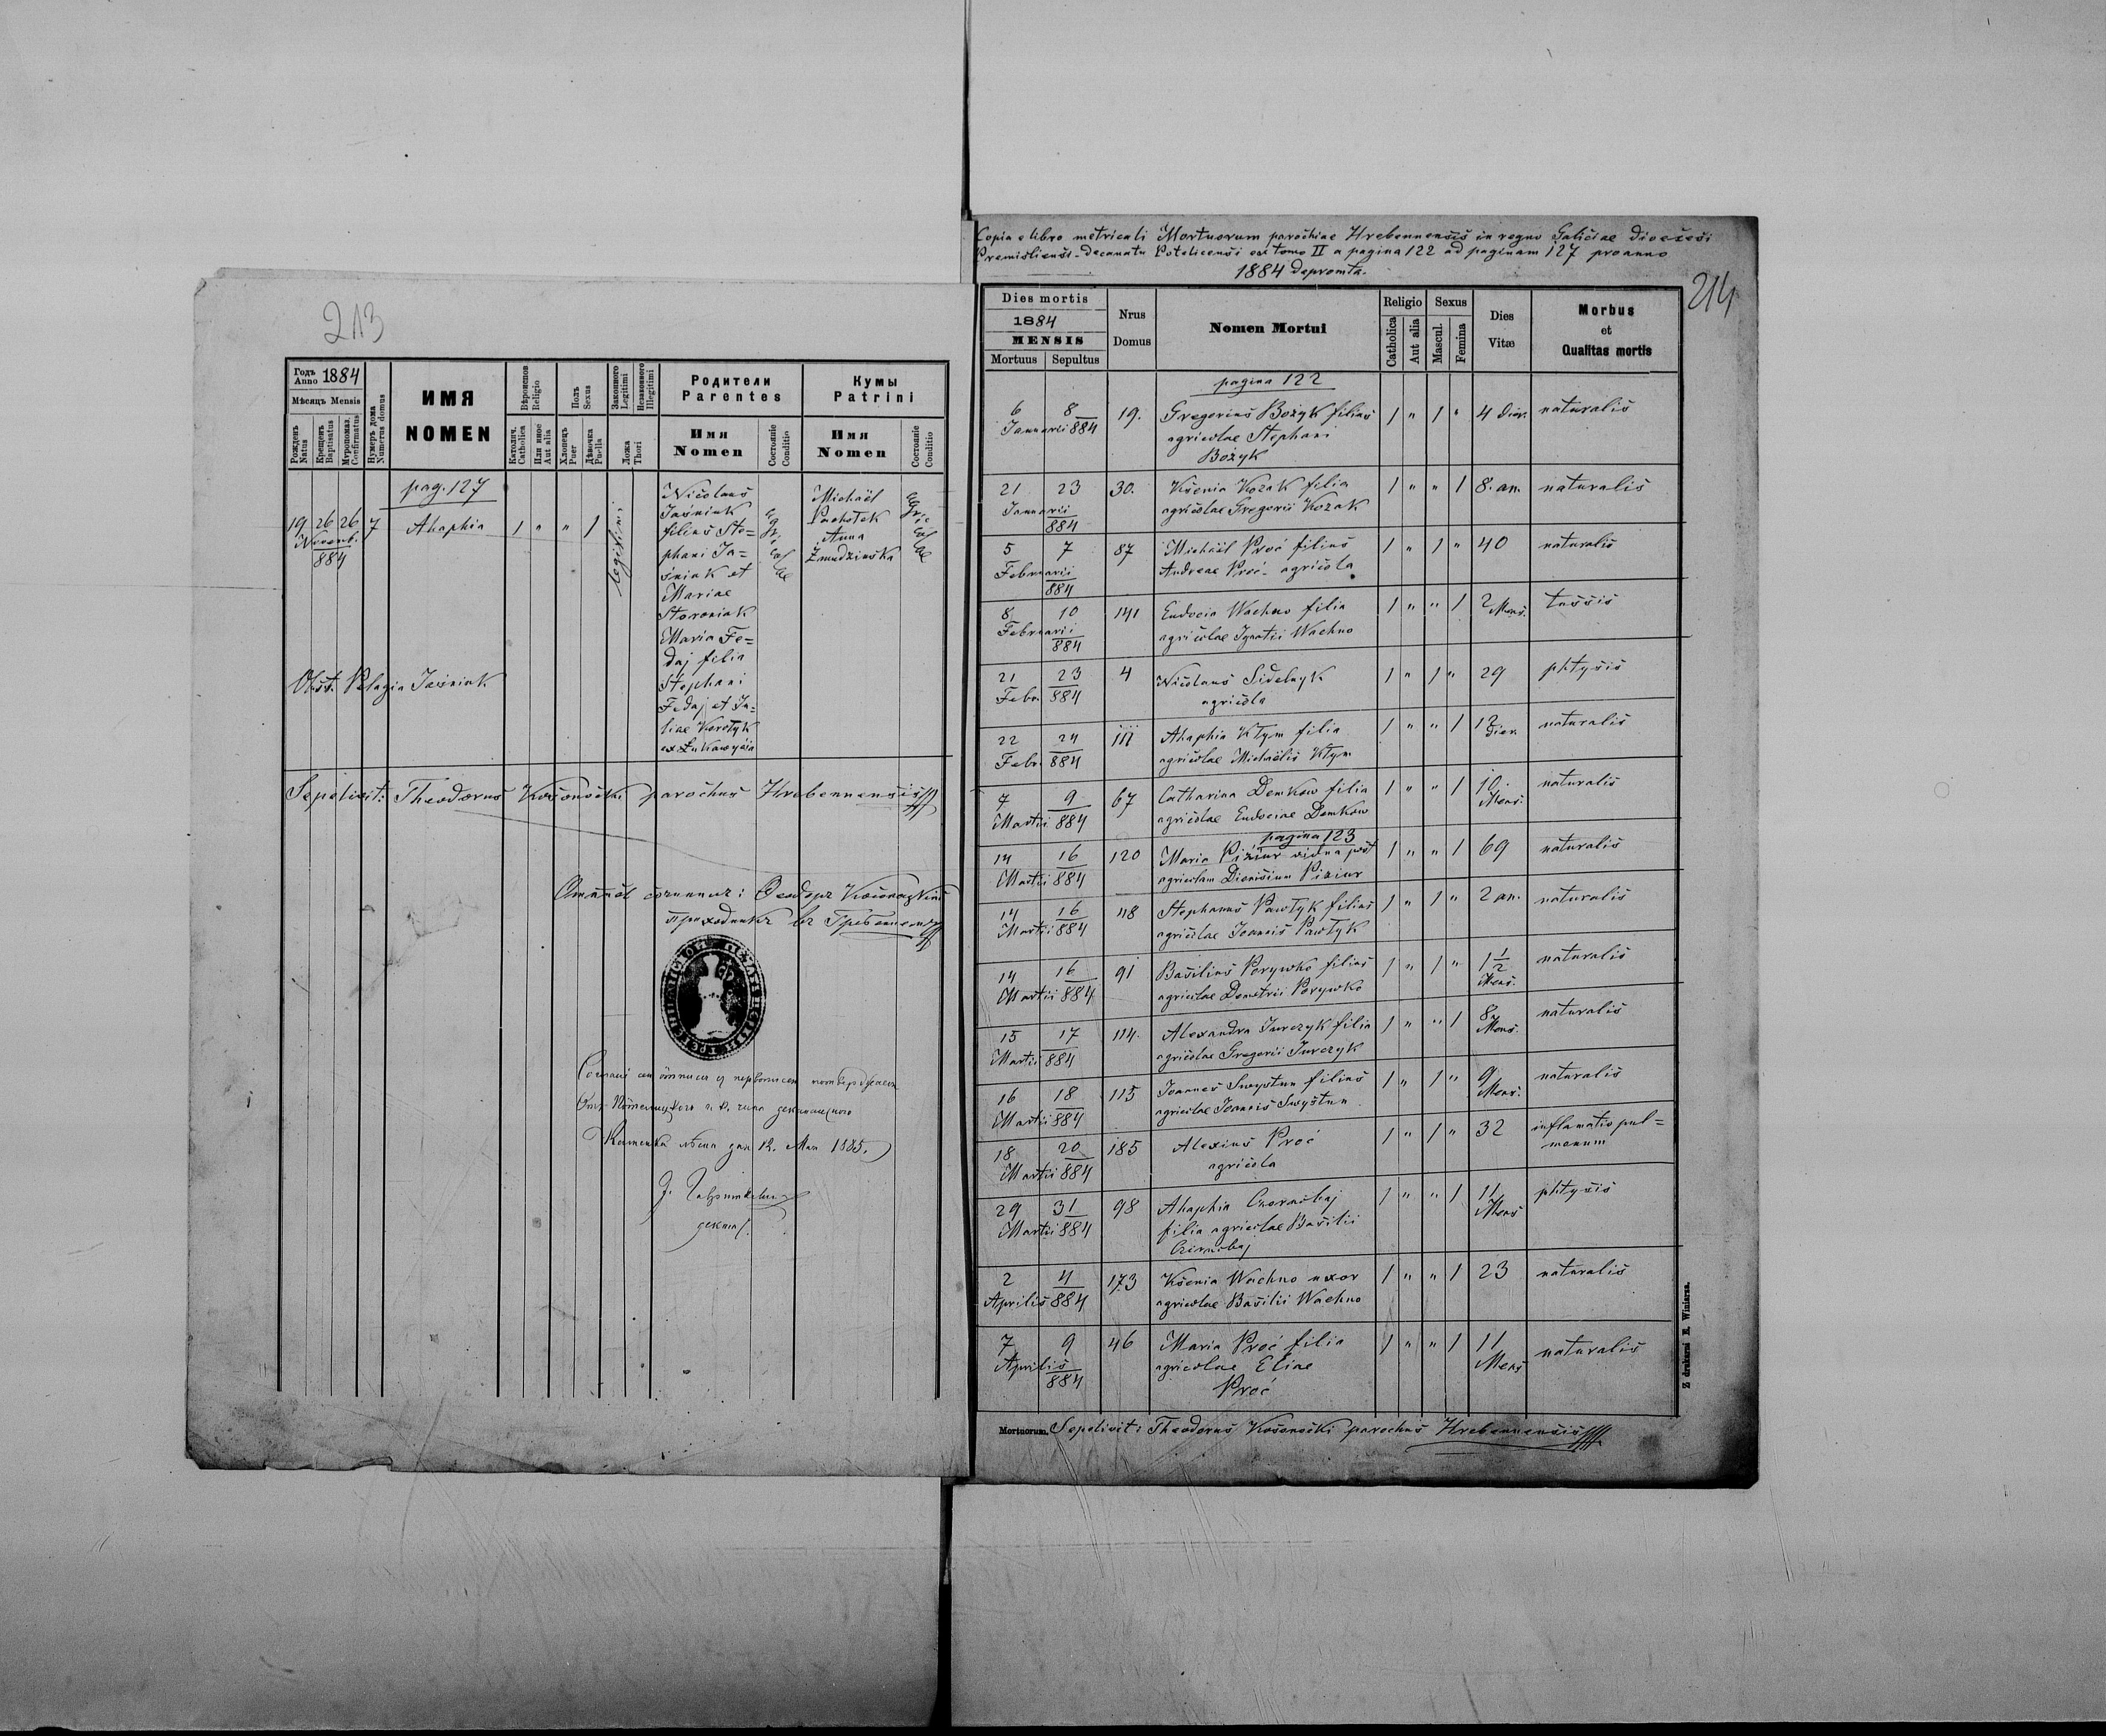 213
Годъ Anno 1884
Мѣсяцъ Mensis
Рожденъ Natus
Крещенъ Baptisatus
Мѵропомаз. Confirmatus
Нумеръ дома Numerus domus
ИМЯ
NOMEN
Вѣроисповѣд. Religio
Католич. Catholica
Или иное Aut alia
Полъ Sexus
Хлопець Puer
Дѣвочка Puella
Законного Legitimi
Незаконного Illegitimi
Ложа Thori
Родители
Parentes
Имя
Nomen
Состояніе Conditio
Кумы
Patrini
Имя
Nomen
Состояніе Conditio
pag. 127
19 26 26 7 Ahaphia 1 " " 1 legitimi
Novemb.
884
Nicolaus
Jaśniuk
filius Ste=
phani Ja=
śniuk et
Mariae
Storoniak
Maria Fe=
daj filia
Stephani
Fedaj et Ju=
liae Korotyk
agricolae
Michaël
Pachołek
Anna
Żmudzinska
agricolae
Obst. Pelagia Jaśniuk
Sepelivit: Theodorus Kosonocki parochus Hrebennensis
приходникъ въ Гребенномъ
Каменка дня 12. Мая 1885.
Copia e libro metricali Mortuorum parochiae Hrebennensis in regno Galiciae Diocesi
Premisliensi-Decanatu Potelicensi ex tomo II a pagina 122 ad paginam 127 pro anno
1884 depromta.
214
Dies mortis
1884
MENSIS
Mortuus Sepultus
Nrus
Domus
Nomen Mortui
Religio
Catholica
Aut alia
Sexus
Mascul.
Femina
Dies
Vitæ
Morbus
et
Qualitas mortis
pagina 122
6 8 19. Gregorius Bożyk filius 1 " 1 " 4 dier. naturalis
Januarii 884 agricolae Stephani
Bożyk
21 23 30. Ksenia Kozak filia 1 " " 1 8. an. naturalis
Januarii agricolae Gregorii Kozak
884
5 7 87 Michaël Proć filius 1 " 1 " 40 naturalis
Februarii Andreae Proć - agricola
884
8 10 141 Eudocia Wachno filia 1 " " 1 2 Mens. tussis
Februarii agricolae Ignatii Wachno
884
21 23 4 Nicolaus Sidelnyk 1 " 1 " 29 phtysis
Febr. 884 agricola
22 24 111 Ahaphia Kłym filia 1 " " 1 12 dier. naturalis
Febr. 884 agricolae Michaëlis Kłym
7 9 67 Catharina Demkow filia 1 " " 1 10. Mens. naturalis
Martii 884 agricolae Eudociae Demkow
pagina 123
14 16 120 Maria Piziur vidua post 1 " " 1 69 naturalis
Martii 884 agricolam Dionisium Piziur
14 16 118 Stephanus Pawłyk filius 1 " 1 " 2 an. naturalis
Martii 884 agricolae Joannis Pawłyk
14 16 91 Basilius Porywko filius 1 " 1 " 1 1/2 Mens. naturalis
Martii 884 agricolae Demetrii Porywko
15 17 114. Alexandra Jurczyk filia 1 " " 1 8 Mens. naturalis
Martii 884 agricolae Gregorii Jurczyk
16 18 115 Joannes Swystun filius 1 " 1 " 9 Mens. naturalis
Martii 884 agricolae Joannis Swystun
18 20 185 Alexius Proć 1 " 1 " 32 inflamatio pul=
Martii 884 agricola monum
29 31 98 Ahaphia Czornobaj 1 " " 1 11 Mens phtysis
Martii 884 filia agricolae Basilii
Czornobaj
2 4 173 Ksenia Wachno uxor 1 " " 1 23 naturalis
Aprilis 884 agricolae Basilii Wachno
7 9 46 Maria Proć filia 1 " " 1 11 Mens naturalis
Aprilis agricolae Eliae
884 Proć
Mortuorum. Sepelivit: Theodorus Kosonocki parochus Hrebennensis
Z drukarni E. Winiarza.